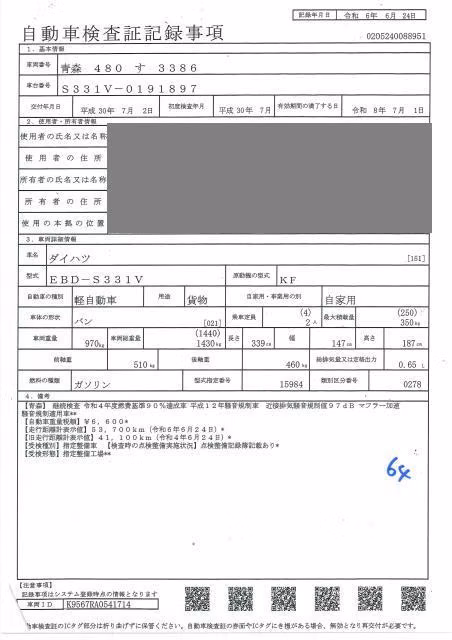 記録年月日 令和 6年 6月 24日
自動車検査証記録事項
0205240088951
1．基本情報
車両番号 青森 480 す 3386
車台番号 S331V-0191897
交付年月日 平成 30年 7月 2日 初度検査年月 平成 30年 7月 有効期間の満了する日 令和 8年 7月 1日
2．使用者・所有者情報
使用者の氏名又は名称
使用者の住所
所有者の氏名又は名称
所有者の住所
使用の本拠の位置
3．車両詳細情報
車名 ダイハツ [151]
型式 EBD-S331V 原動機の型式 KF
自動車の種別 軽自動車 用途 貨物 自家用・事業用の別 自家用
車体の形状 バン [021] 乗車定員 (4) 2人 最大積載量 (250) 350kg
車両重量 970kg 車両総重量 (1440) 1430kg 長さ 339cm 幅 147cm 高さ 187cm
前軸重 510kg 後軸重 460kg 総排気量又は定格出力 0.65 L
燃料の種類 ガソリン 型式指定番号 15984 類別区分番号 0278
4．備考
【青森】 継続検査 令和4年度燃費基準90％達成車 平成12年騒音規制車 近接排気騒音規制値97dB マフラー加速
騒音規制適用車**
【自動車重量税額】￥6，600*
【走行距離計表示値】53，700km（令和6年6月24日）*
【旧走行距離計表示値】41，100km（令和4年6月24日）*
【受検種別】指定整備車 【検査時の点検整備実施状況】点検整備記録簿記載あり*
【受検形態】指定整備工場**
64
【注意事項】
記録事項はシステム登録時点の情報となります
車両ID K9567RA0541714
自動車検査証のICタグ部分は折り曲げずに保管ください。自動車検査証の券面やICタグにき損がある場合、無効となり再交付が必要です。